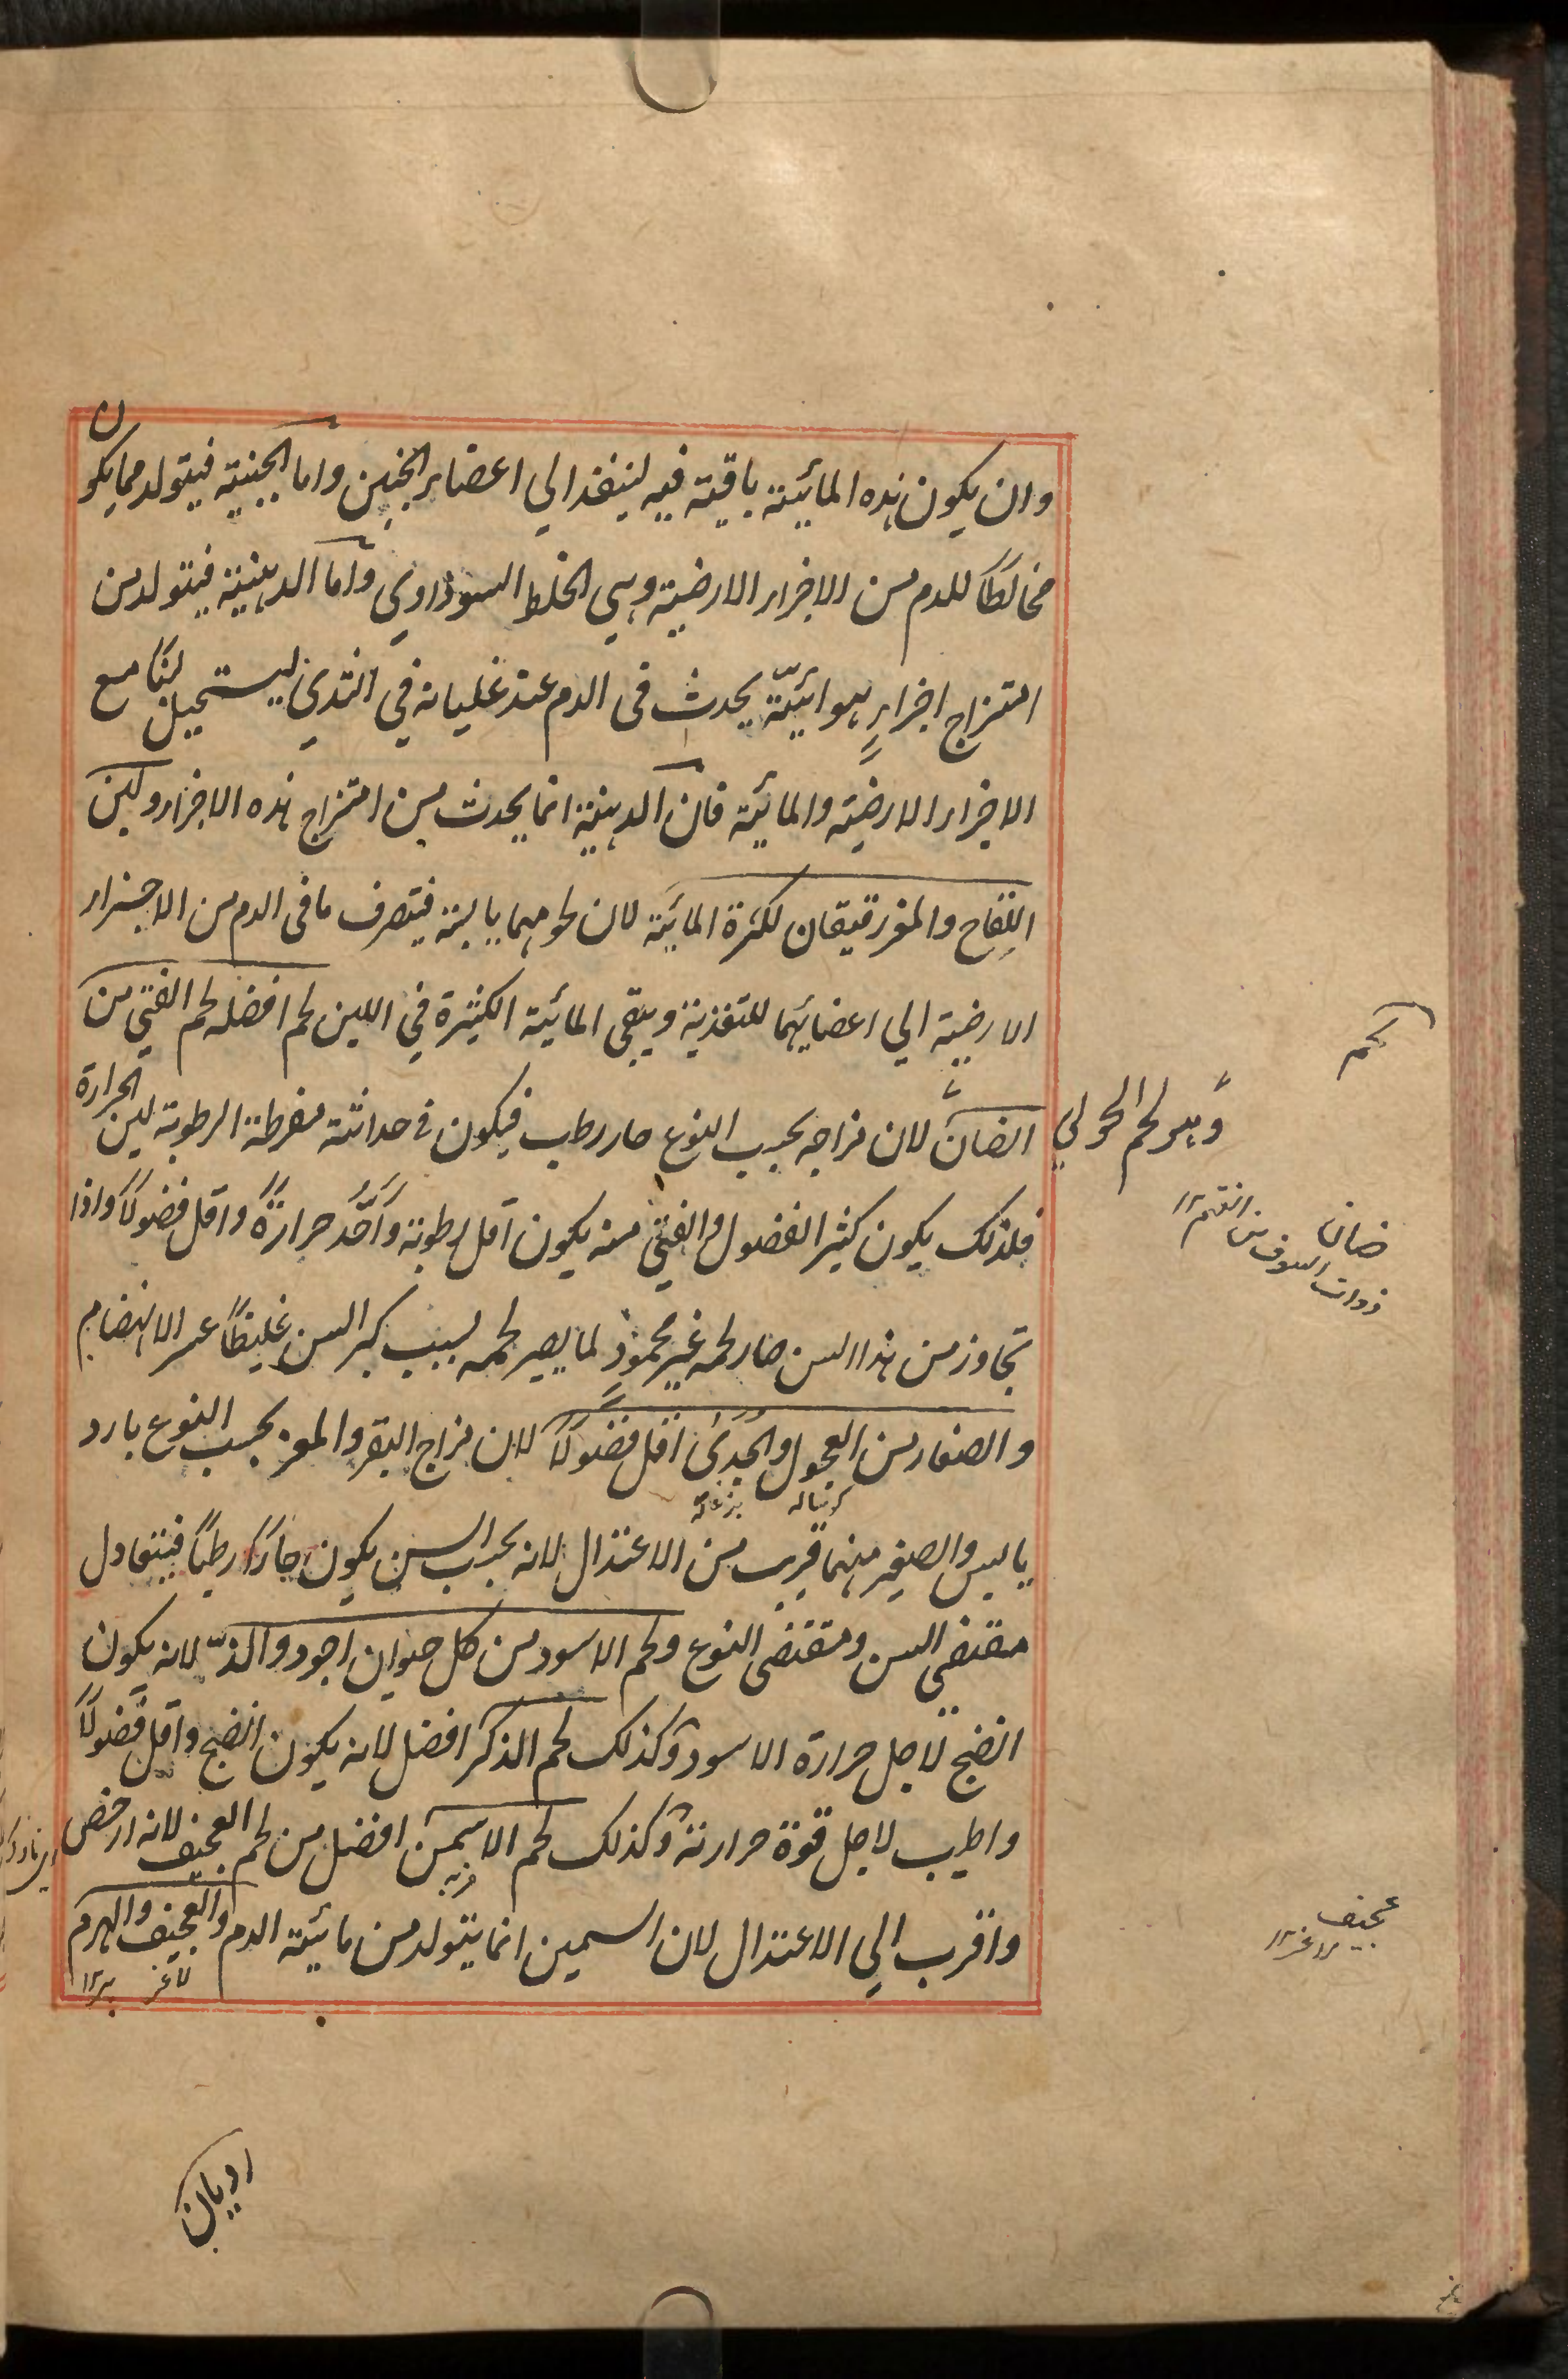 وان يكون هذه المائية باقية فيه لينفذ الي اعضاء الجنين واما الجبنية فيتولد مما يكون
مخالطاً للدم من الاجزاء الارضية وهي الخلط السوداوي واما الدهنية فيتولد من
امتزاج اجزاءٍ هوائيّة يحدث فى الدم عند غليانه في الثدي ليستحيل لبنًا مع
الاجزاء الارضية والمائية فان الدهنية انما يحدث من امتزاج هذه الاجزاء ولبن
اللقاح والمعز رقيقان لكثرة المائية لان لحومهما يابسة فيتصرف ما فى الدم من الاجزاء
الارضية الي اعضائهما للتغذية ويبقى المائية الكثيرة في اللبن لحم افضله لحم الفتي من
الضان لان مزاجه بحسب النوع حار رطب فيكون فى حداثته مفرطة الرطوبة لين الحرارة
فلذلك يكون كثير الفضول والفتي منه يكون اقل رطوبة وَاَحَّد حرارةً واقل فضولاً واذا
تجاوز من هذا السن صار لحمه غير محمودٍ لما يصير لحمه بسبب كبر السن غليظاً عسر الانهضام
والصغار من العجول والجدىٰ اقل فضولاً لان مزاج البقر والمعز بحسب النوع بارد
يابس والصغير منهما قريب من الاعتدال لانه بحسب السن يكون حارًا رطبًا فيتعادل
مقتضى السن ومقتضى النوع ولحم الاسود من كل حيوان اجود والذّ لانه يكون
انضج لاجل حرارة الاسود وكذلك لحم الذكر افضل لانه يكون انضج واقل فضولاً
واطيب لاجل قوة حرارته وكذلك لحم الاسمن افضل من لحم العجيف لانه ارخص
واقرب الي الاعتدال لان السمين انما يتولد من مائية الدم والعجيف والهرم
لحم
وهو لحم الحولي
ضان
ذوات الصوف من الغنم ١٢
كوساله بزغاله
فربه
عجيف
لاغر ١٢
لاغر پير ١٢
رديان